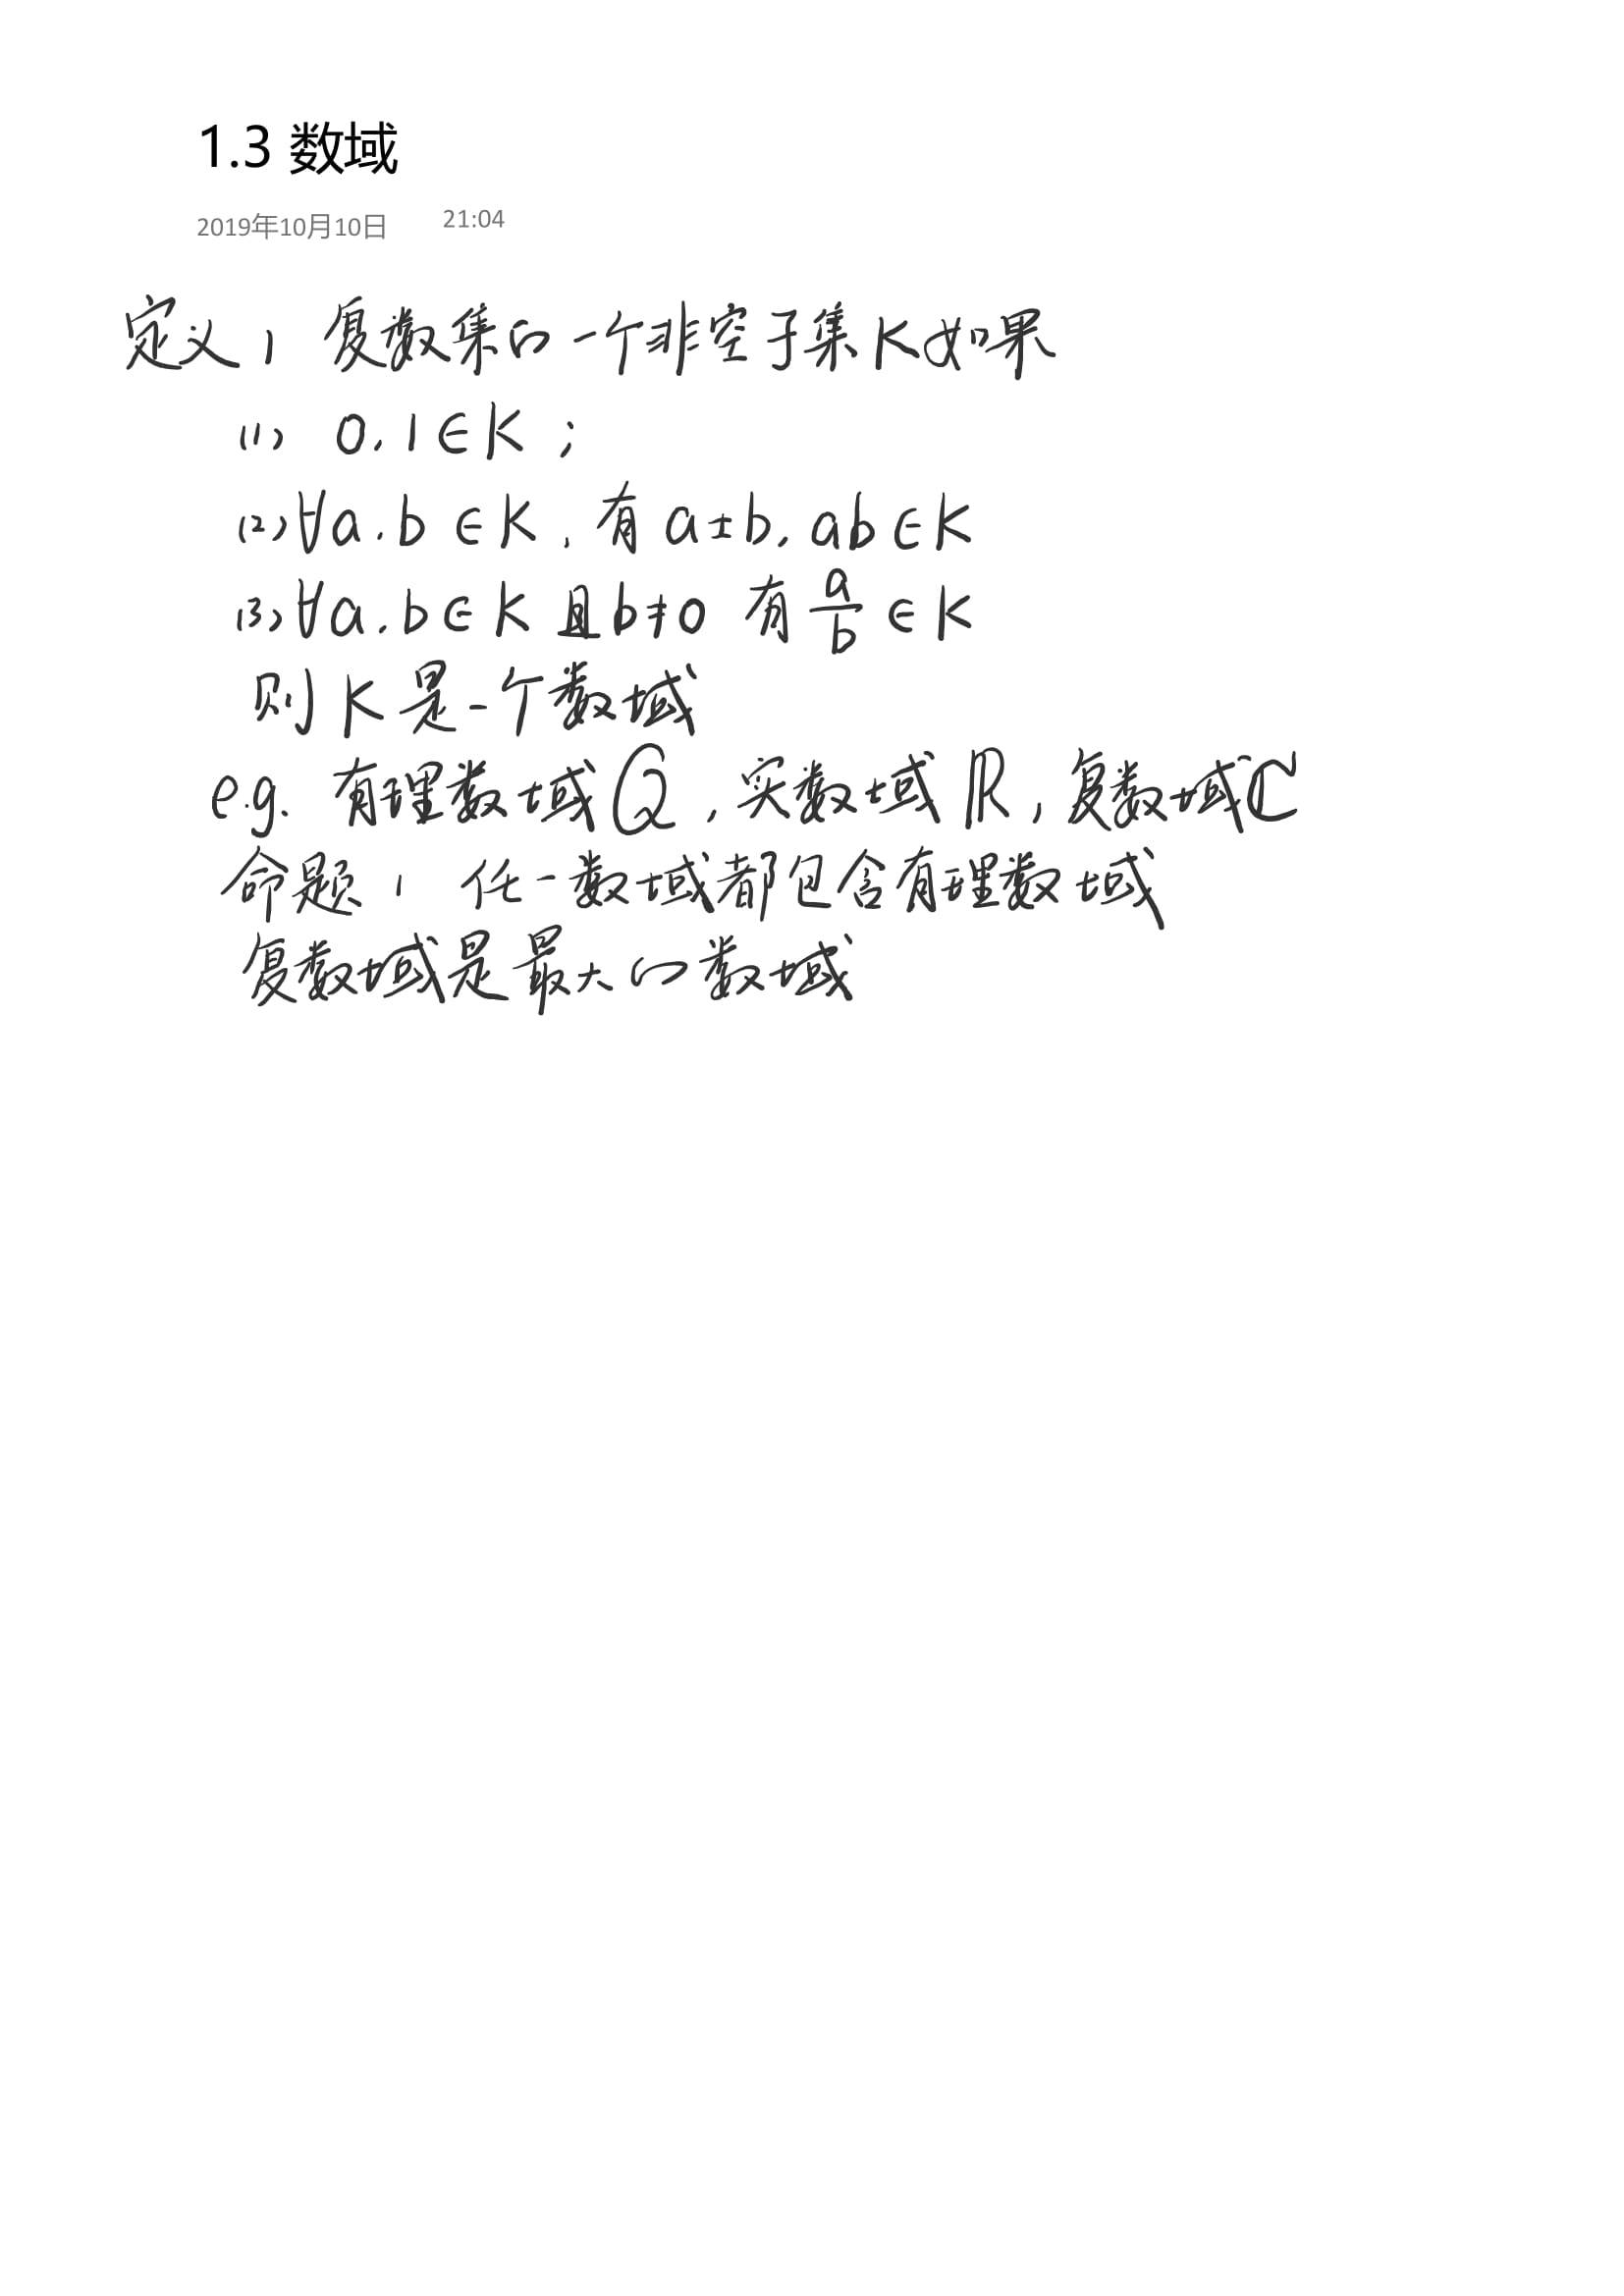 1.3 数域
2019年10月10日 21:04
定义1 复数集的一个非空子集K如果
(1) 0, 1∈K ;
(2) ∀a.b∈K, 有a±b, ab∈K
(3) ∀a.b∈K且b≠0 有 a/b ∈K
则K是一个数域
e.g. 有理数域ℚ, 实数域ℝ, 复数域ℂ
命题1 任一数域都包含有理数域
复数域是最大的数域